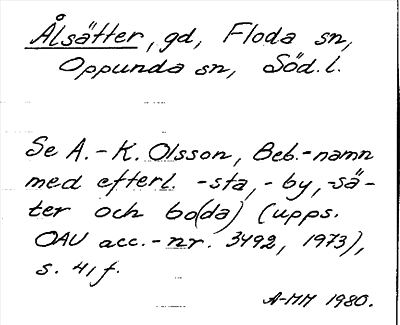 Ålsätter, gd, Floda sn,
Oppunda sn, Söd. l.
Se A.-K. Olsson, Beb.-namn
med efterl. -sta, -by, -sä-
ter och bo(da) (upps.
OAU acc.-nr. 3492, 1973),
s. 41 f.
A-MM 1980.